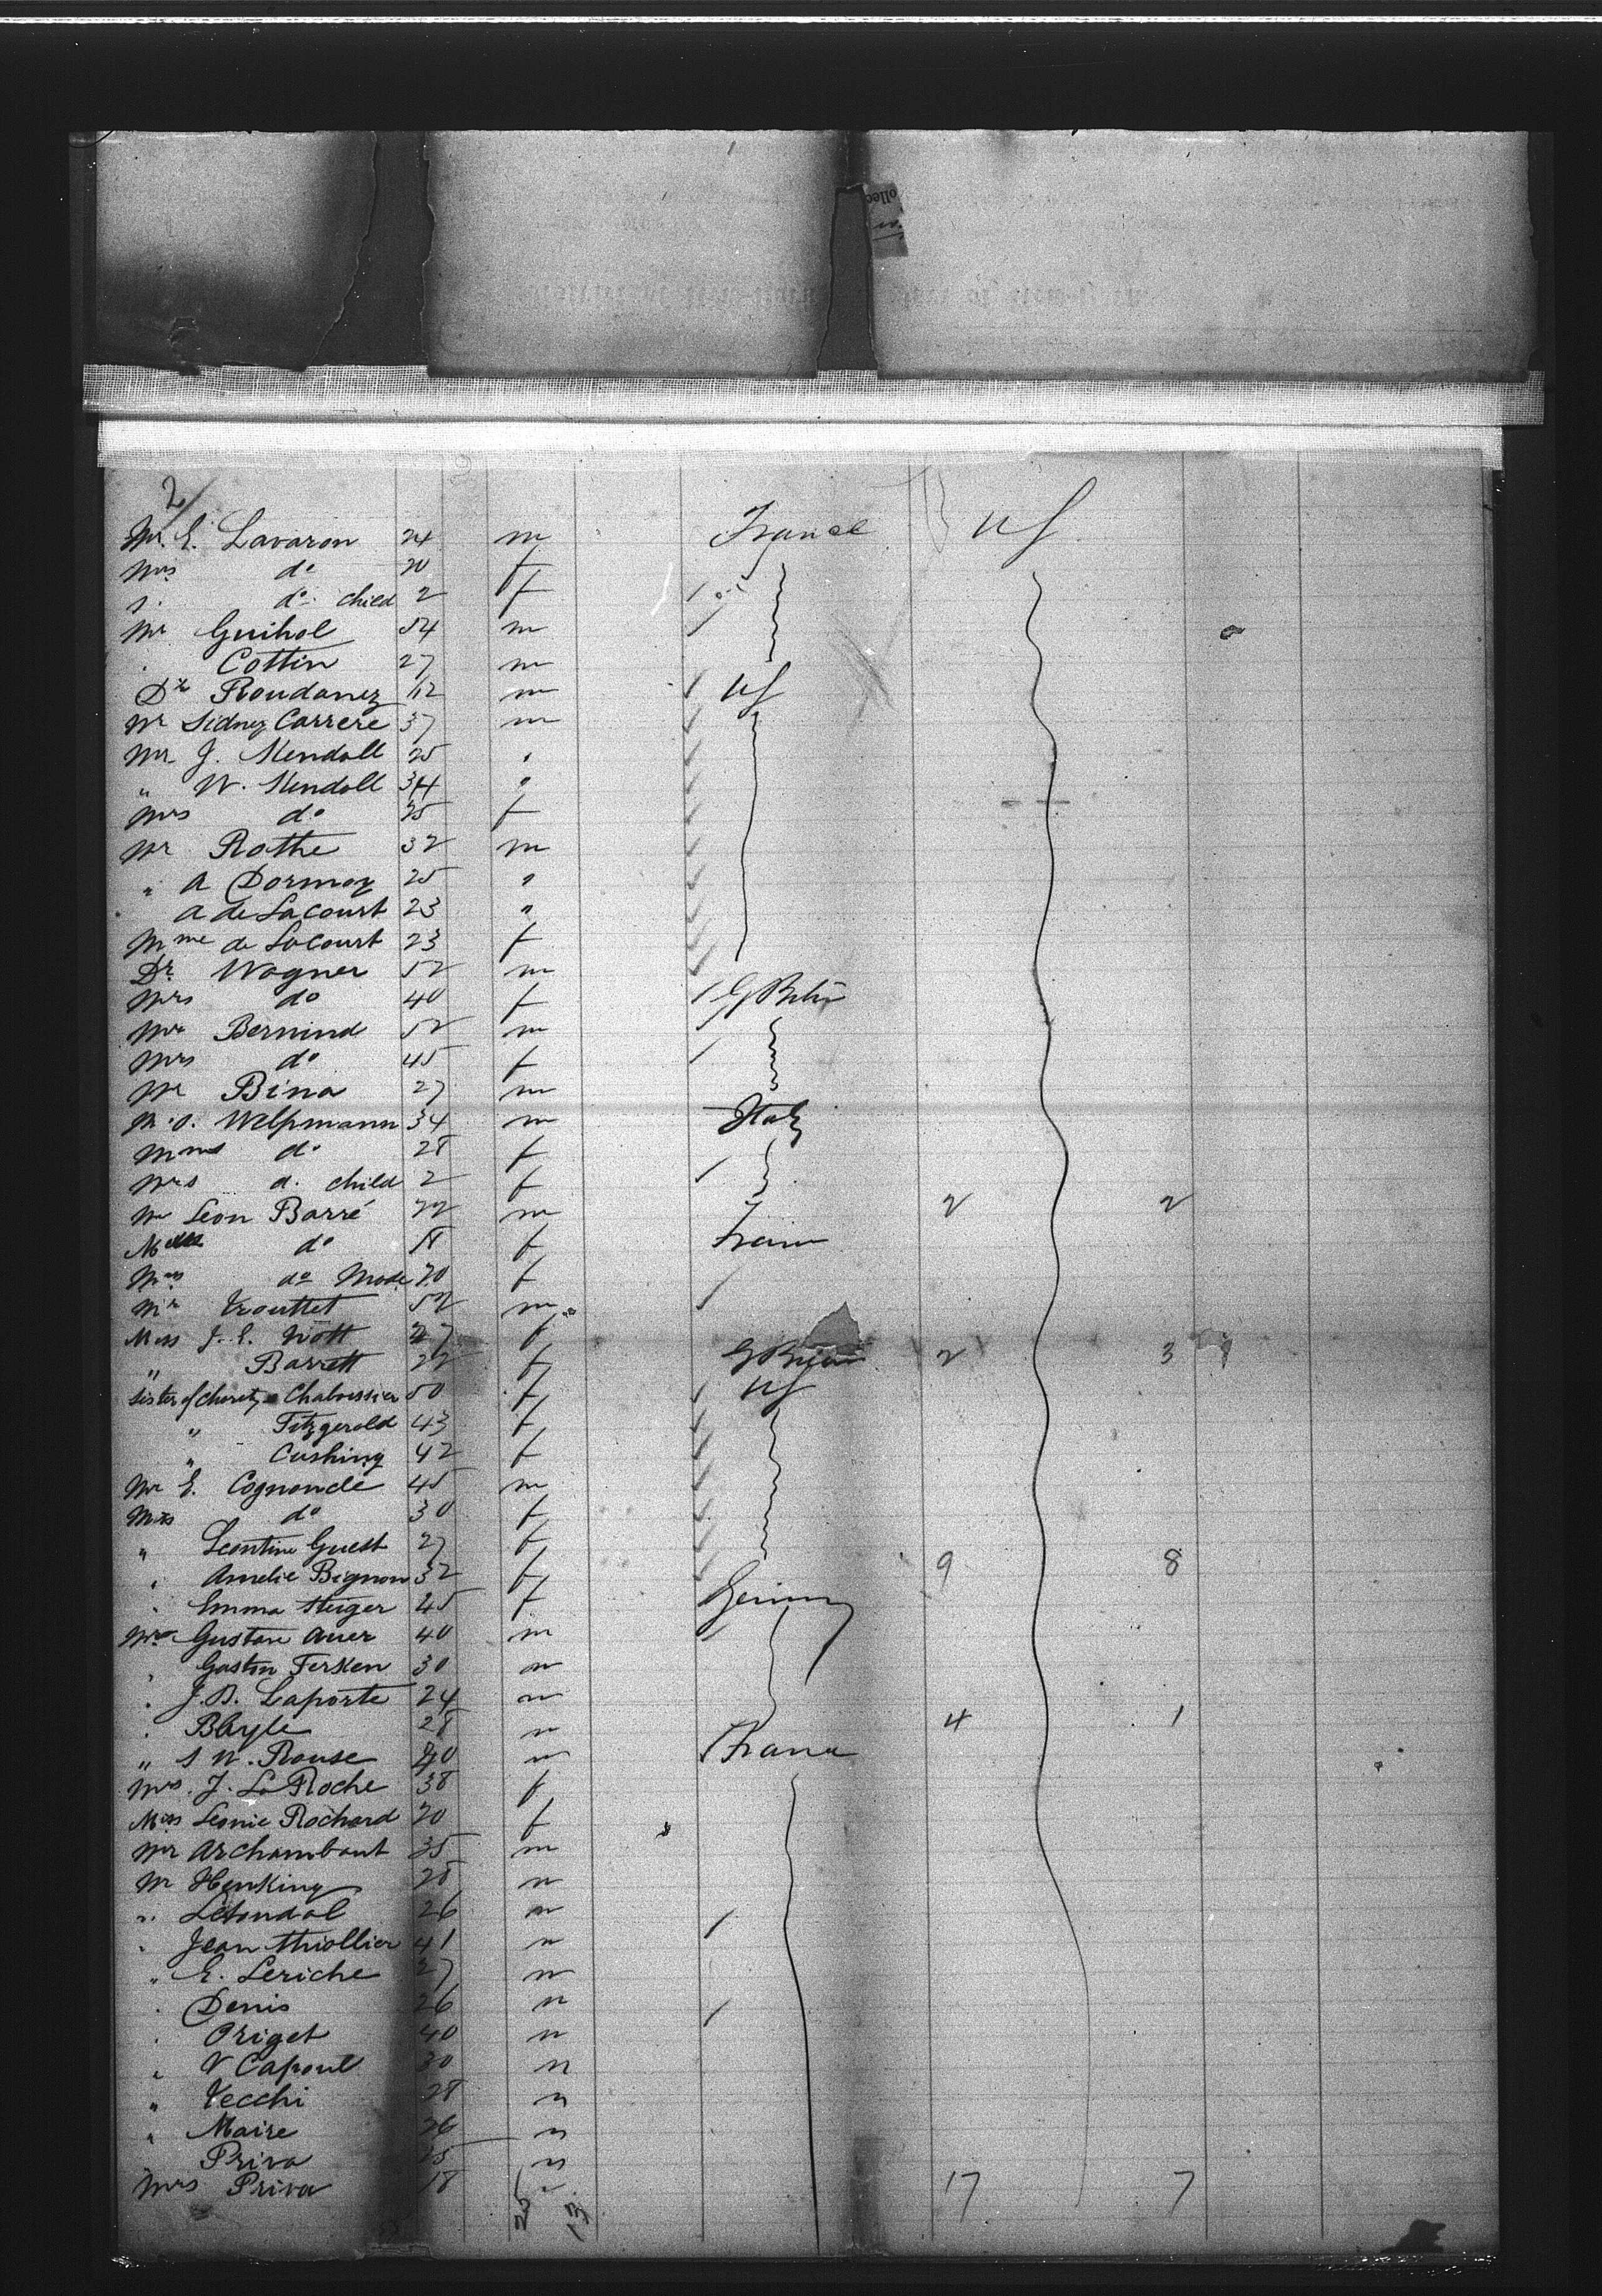 2/
Mr. E. Lavaron 24 m France US
Mrs do 20 f
do child 2 f
Mr Guihol 54 m
Cottin 27 m
Dr Roudanez m US
Mr Sidney Carrere 37 m
Mr J. Kendall 25 "
" W. Kendall 34 "
Mrs do 25 f
Mr Rothe 32 m
" A Dormoy 25 "
A de Lacourt 23 "
Mme de Lacourt 23 f
Dr. Wagner 52 m
Mrs do 40 f G
Mr Bernind 52 m
Mrs do 45 f
Mr Bina 27 m
Welpmann 34 m Italy
do 28 f
Mrs d. child 2 f
Mr Leon Barré 22 m 2 2
Melle do 18 f
do 20 f
Mr Trouttet 52 m
Miss J. E. Nott 27 f
" Barrett 22 f G 2 3
Sister of Charity Chaloissier 50 f US
" Fitzgerald 43 f
" Cushing 42 f
Mr E. Cognonde 45 m
do 30 f
" Leontine Guest 27 f
" Amelie Bignon 32 f 9 8
Emma Steiger 45 f
Gustave Auer 40 m
" Gaston Fersken 30 m
" J. B. Laporte 24 m
" Bayle 28 m 4 1
" Rouse 40 m
Mrs. J. La Roche 38 f
Miss Leonie Rochard 20 f
Mr Archambaut 35 m
Mr Henking 28 m
" Letondal 26 m
" Jean Thiollier 41 m
" E. Leriche 27 m
" Denis 26 m
" Origet 40 m
" V Capoul 30 m
" Vecchi 28 m
" Maire 26 m
Priva 25 m
Mrs Priva 18 17 7
25 13